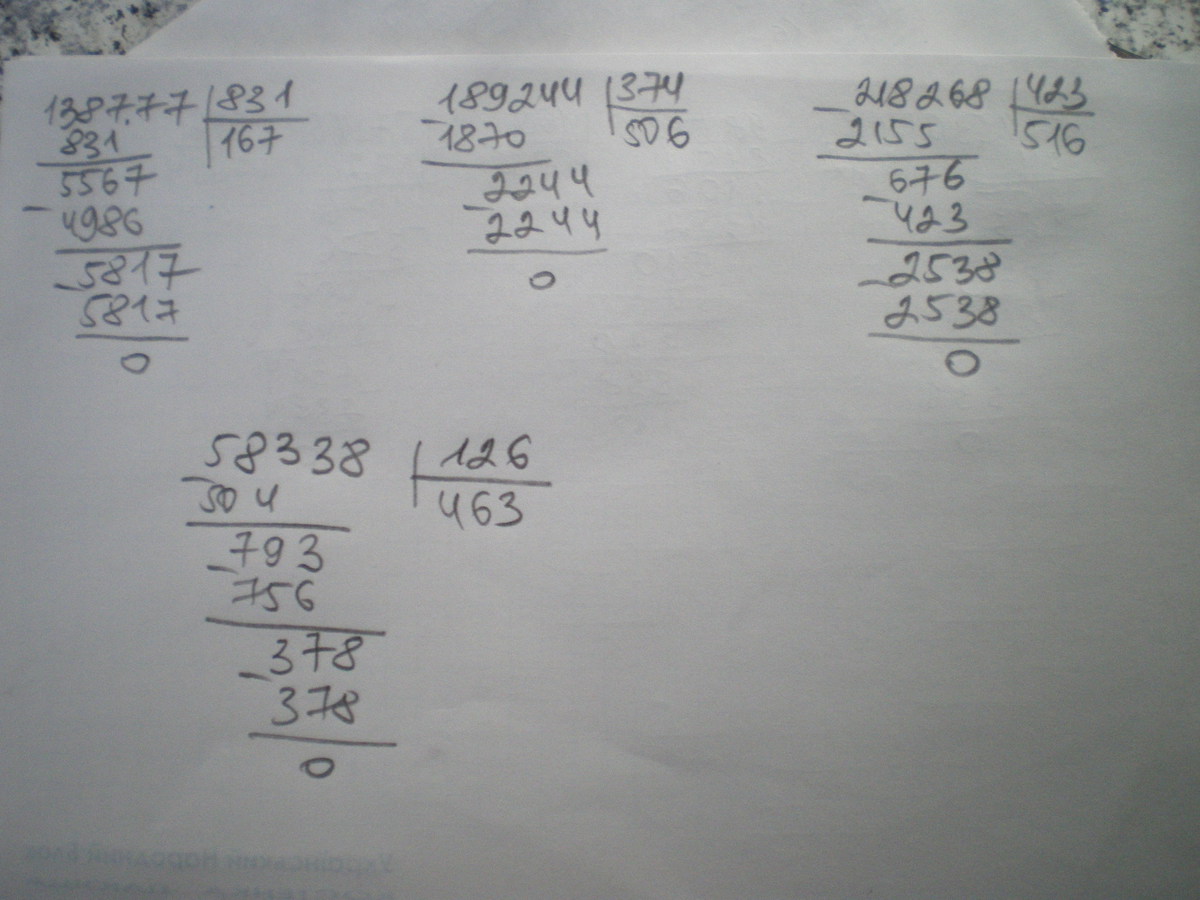 138777 831
831 167
5567
- 4986
- 5817
5817
0
- 189244 374
1870 506
- 2244
2244
0
- 218268 423
2155 516
- 676
423
- 2538
2538
0
- 58338 126
504 463
- 793
756
- 378
378
0
Український народний